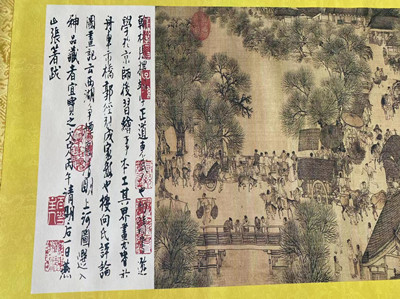 翰林張擇端字正道東武人也幼讀書遊
學於京師後習繪事本工其界畫尤嗜於
舟車市橋郭徑別成家數也按向氏評論
圖畫記云西湖爭標圖清明上河圖選入
神品藏者宜寶之大定丙午清明后一日燕
山張著跋